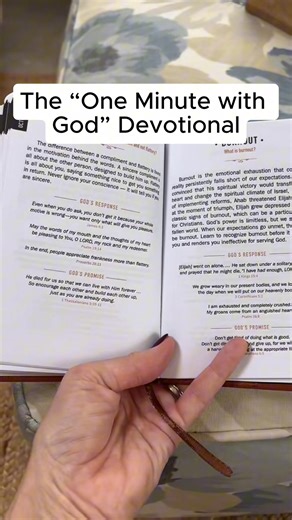 The “One Minute with
God” Devotional
The difference between a compliment and flattery is
in the motivation behind the words. A sincere
all about the other person, designed to build
is all about you, saying something nice to get
in return. Never ignore your conscience — it will tell you if
are sincere.
GOD'S RESPONSE
Even when you do ask, you don't get it because your
motive is wrong—you want only what will give you pleasure.
May the words of my mouth and the thoughts of my heart
be pleasing to You, O LORD, my rock and my redeemer.
In the end, people appreciate frankness more than flattery.
GOD'S PROMISE
He died for us so that we can live with Him forever
So encourage each other and build each other up,
just as you are already doing.
BURNOUT
What is burnout?
Burnout is the emotional exhaustion that
reality persistently falls short of our expectations.
assumed that his spiritual victory would
heart and change the spiritual climate of Israel,
of implementing reforms, Ahab threatened Elijah
at the moment of triumph, Elijah grew depressed
classic signs of burnout, which can be a particular
for Christians. God's power is limitless, but we are
fallen world. When our expectations go unmet, the
be burnout. Learn to recognize burnout before it
you and renders you ineffective for serving God.
GOD'S RESPONSE
[Elijah] went on alone. . . . He sat down under a solitary
and prayed that he might die, “I have had enough, LORD
We grow weary in our present bodies, and we
the day when we will put on our heavenly
I am exhausted and completely crushed.
My groans come from an anguished heart.
GOD'S PROMISE
Don't get tired of doing what is good.
Don't get and give up, for we
a harvest at the appropriate